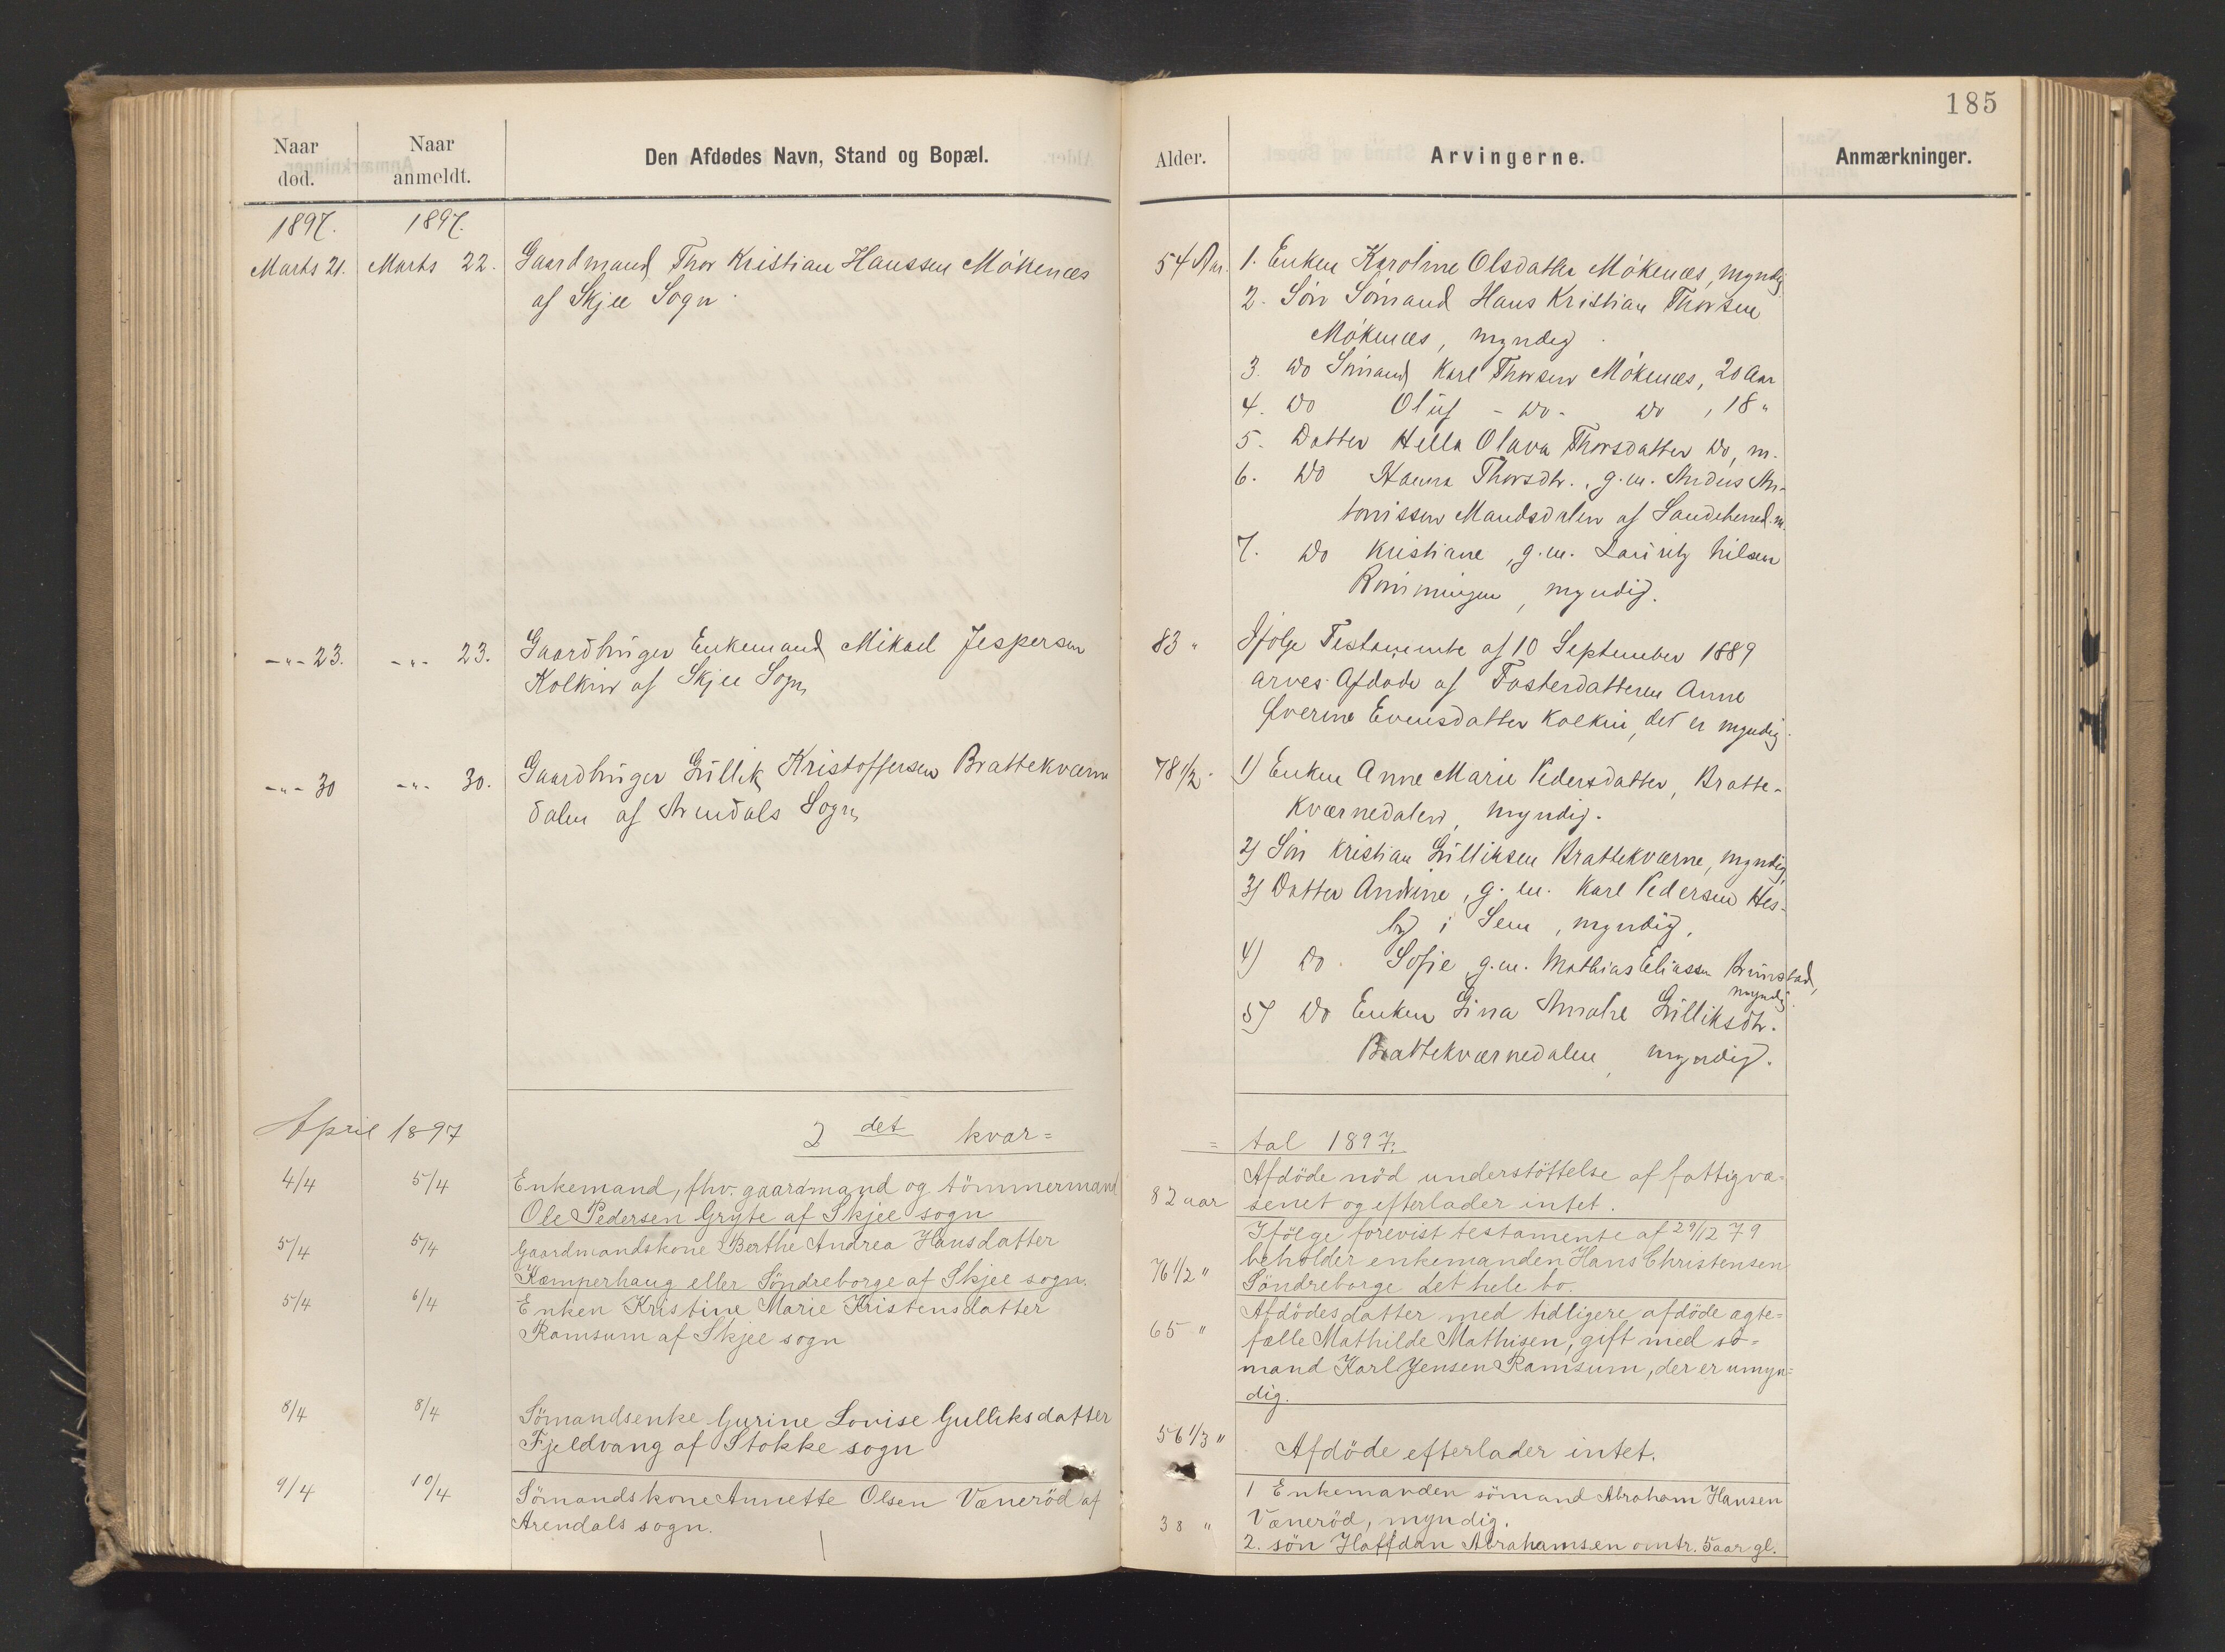 185
Naar død.
Naar anmeldt.
Den Afdødes Navn, Stand og Bopæl.
Alder.
Arvingerne.
Anmærkninger.
1897. 1897.
Marts 21. Marts 22. Gaardmand Thor Kristian Hanssen Mökenæs
af Skjee Sogn.
54 Aar. 1. Enken Karoline Olsdatter Mökenæs, myndig
2. Sön Sömand Hans Kristian Thorsen
Mökenæs, myndig.
3. Do Sömand Karl Thorsen Mökenæs, 20 Aar
4. Do Oluf - Do - Do, 18 "
5. Datter Hella Olava Thorsdatter Do, m.
6. Do Hanna Thorsdtr., g.m. Anders An-
tonissen Mandsdalen af Sandeherred m.
7. Do Kristiane, g.m. Lauritz Nilsen
Rönningen, myndig.
-"- 23. -"- 23. Gaardbruger Enkemand Mikael Jespersen
Kolkin af Skjee Sogn
83 " Ifölge Testamente af 10 September 1889
arves Afdöde af Fosterdatteren Anne
Severine Evensdatter Kolkin, det er myndig.
-"- 30 -"- 30. Gaardbruger Gullik Kristoffersen Brattekværne
dalen af Arendals Sogn
78 1/2 " 1) Enken Anne Marie Pedersdatter, Bratte-
kværnedalen, myndig.
2) Sön Kristian Gulliksen Brattekværne, myndig,
3) Datter Andrine, g.m. Karl Pedersen Hes-
by i Sem, myndig,
4) Do. Sofie, g.m. Mathias Eliassen Brunstad,
myndig.
5) Do Enken Gina Amalie Gulliksdtr.
Brattekværnedalen, myndig.
April 1897 2 det kvar=
= tal 1897.
4/4 5/4 Enkemand, fhv. gaardmand og tömmermand
Ole Pedersen Gryte af Skjee sogn
82 aar Afdöde nöd understöttelse af fattigvæ-
senet og efterlader intet.
5/4 5/4 Gaardmandskone Berthe Andrea Hansdatter
Kæmperhaug eller Söndreborge af Skjee sogn.
76 1/2 " Ifölge forevist testamente af 29/12 79
beholder enkemanden Hans Christensen
Söndreborge det hele bo.
5/4 6/4 Enken Kristine Marie Kristensdatter
Ramsum af Skjee sogn
65 " Afdödes datter med tidligere afdöde ægte=
fælle Mathilde Mathisen, gift med sö=
mand Karl Jensen Ramsum, der er umyn=
dig.
8/4 8/4 Sömandsenke Gurine Lovise Gulliksdatter
Fjeldvang af Stokke sogn
56 1/3 " Afdöde efterlader intet.
9/4 10/4 Sömandskone Annette Olsen Væneröd af
Arendals sogn.
38 " 1 Enkemanden sömand Abraham Hansen
Væneröd, myndig.
2. sön Halfdan Abrahamsen omtr. 5 aar gl.